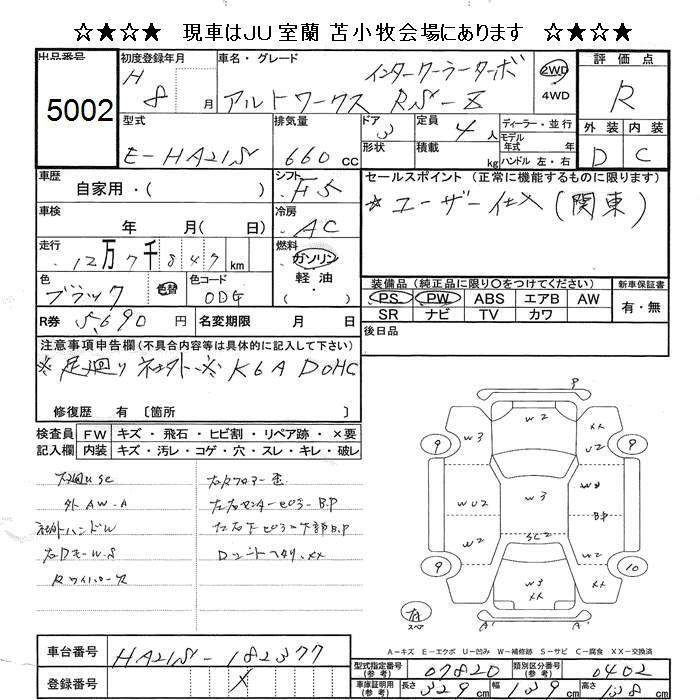 ☆★☆★ 現車はJU室蘭 苫小牧会場にあります ☆★☆★
出品番号
5002
初度登録年月
H
8 月
車名・グレード
インタークーラーターボ
アルトワークス RS-Z
2WD
4WD
評価点
R
外装 内装
D C
型式
E-HA21S
排気量
660 cc
ドア
3
形状
定員
4人
積載
kg
ディーラー・並行
モデル
年式 年
ハンドル 左・右
車歴
自家用・( )
シフト
F5
セールスポイント(正常に機能するものに限ります)
☆ユーザー仕入(関東)
車検
年 月( 日)
冷房
AC
走行
12万7千847km
燃料
ガソリン
軽油
・
色
ブラック
色替
色コード
0DG
装備品(純正品に限り○をつけてください)
新車保証書
PS PW ABS エアB AW
SR ナビ TV カワ
有・無
R券 5,690円
名変期限 月 日
後日品
注意事項申告欄(不具合内容等は具体的に記入して下さい)
※足廻り ※K6A DOHC
修復歴 有 〔箇所
検査員
記入欄
FW キズ・飛石・ヒビ割・リペア跡・×要
内装 キズ・汚レ・コゲ・穴・スレ・キレ・破レ
外AW・A
社外ハンドル
右Dモール・S
Rワイパーレス
右Rフロアー歪
左右センターピラーB.P
左右下ピラー下部B.P
P
W2
W3
XX
U2
9
9
WU2
W3
W3
B.P
W2
SC2
W2
9
10
W3
XX
XX
有
スペ
A' A'
A-キズ E-エクボ U-凹み W-補修跡 S-サビ C-腐食 XX-交換済
車台番号
HA21S-182377
登録番号
X
型式指定番号
(参考)
07820
類別区分番号
(参考)
0402
車庫証明用
(参考)
長さ 329 cm
幅 139 cm
高さ 138 cm